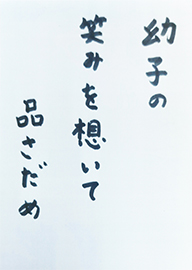 幼子の
笑みを想いて
品さだめ